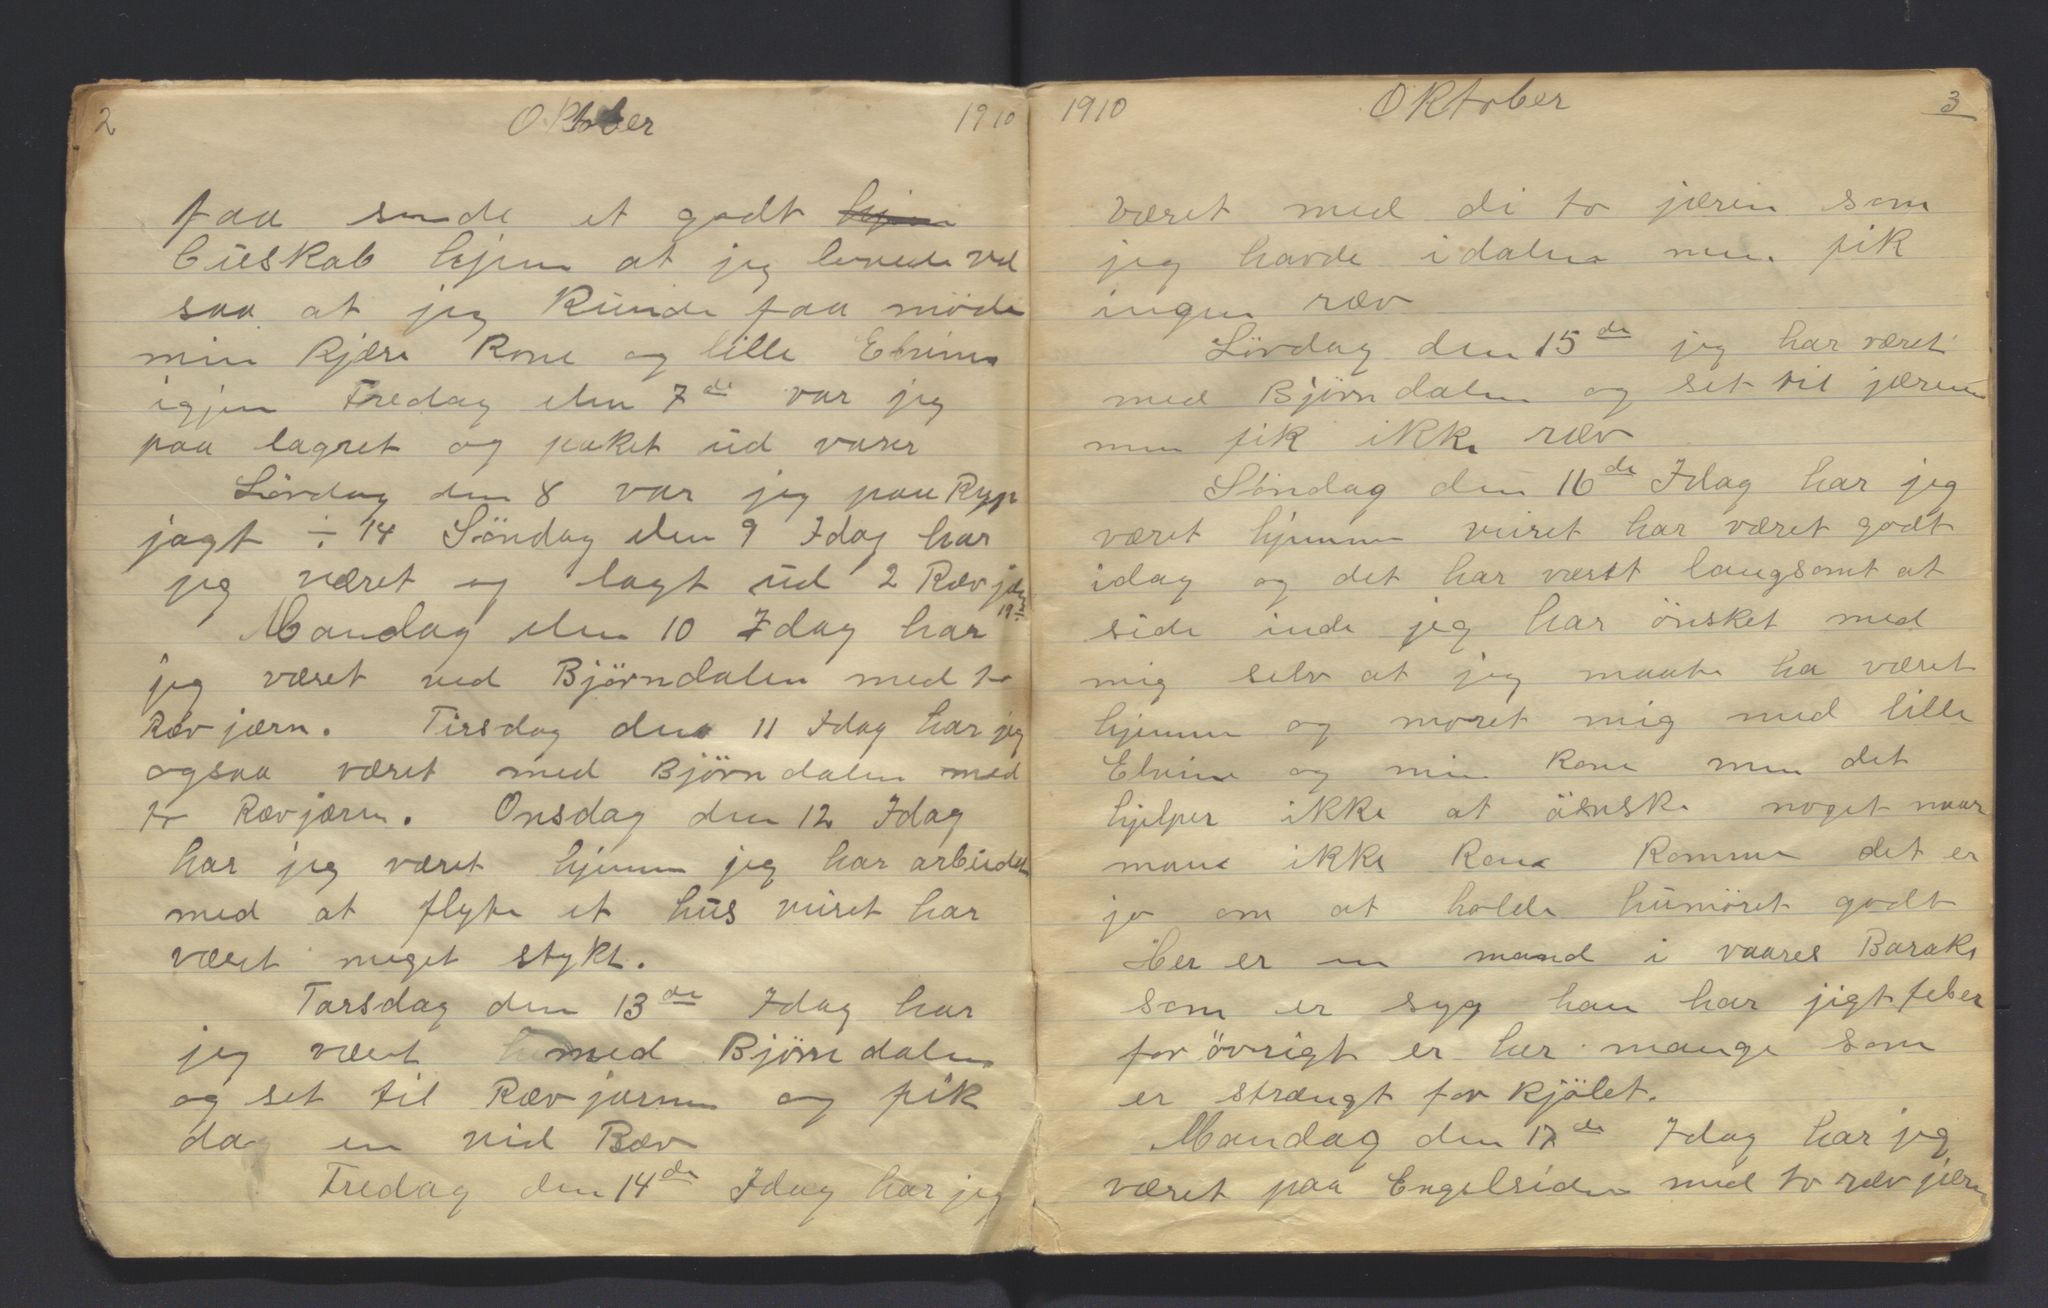 2 Oktober 1910
faa sende et godt hjem
buskab hjem at jeg levede vel
saa at jeg kunde faa möde
min kjære kone og lille Elvine
igjen Fredag den 7de var jeg
paa lagret og paket ud varer
Lördag den 8 var jeg paa Ryp
jagt ÷ 14 Söndag den 9 Idag har
jeg været og lagt ud 2 Ræv jæ
Mandag den 10 Idag har
jeg været ved Björndalen med to
Ræv jærn. Tirsdag den 11 Idag har jeg
ogsaa været med Björn dalen med
to Rævjærn. Onsdag den 12 Idag
har jeg været hjemm jeg har arbeidet
med at flyte et hus veiret har
været meget stykt.
Torsdag den 13de Idag har
jeg været med Björn dalen
og set til Ræv jærnen og fik
da en vid Ræv
Fredag den 14de Idag har jeg
1910 Oktober 3
været med di to jæren som
jeg havde i dalen men fik
ingen ræv
Lördag den 15de jeg har været
med Björn dalen og set til jæren
men fik ikke ræv
Söndag den 16de Idag har jeg
været hjemme veiret har været godt
idag og det har været langsomt at
side inde jeg har önsket med
mig selv at jeg maate ha været
hjemme og moret mig med lille
Elvine og min kone men det
hjelper ikke at önske noget naar
man ikke kan komme det er
jo om at holde humöret godt
Her er en mand i vaares Barake
som er syg han har jigtfeber
for övrigt er her mange som
er strængt for kjölet.
Mandag den 17de Idag har jeg
været paa Engelsiden med to ræv jærn